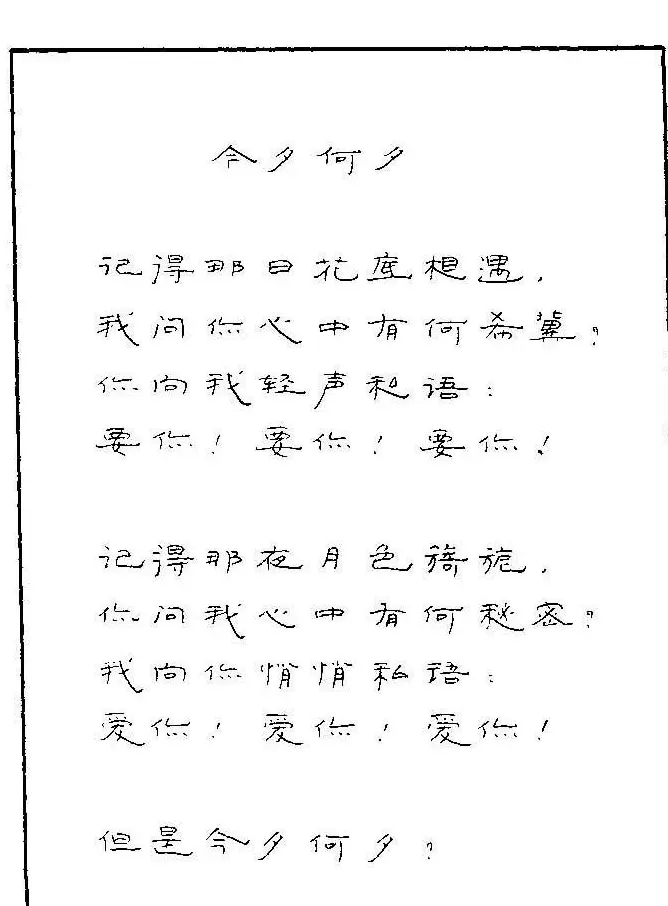 今夕何夕
记得那日花底相遇，
我问你心中有何希冀？
你向我轻声私语：
要你！要你！要你！
记得那夜月色旖旎，
你问我心中有何秘密？
我向你悄悄私语：
爱你！爱你！爱你！
但是今夕何夕？